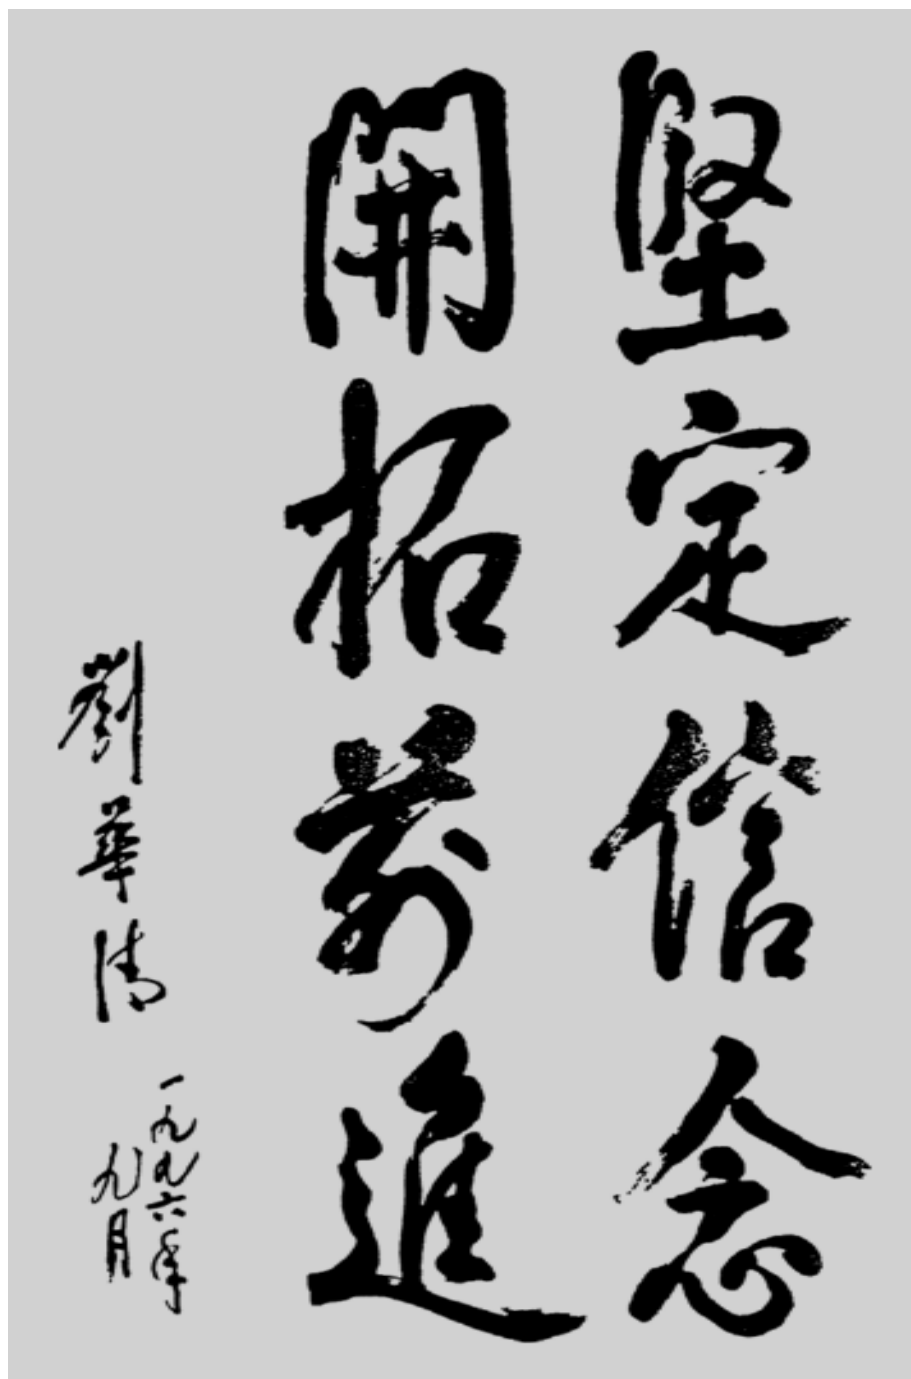 堅定信念
開拓前進
劉華清
一九九六年
九月